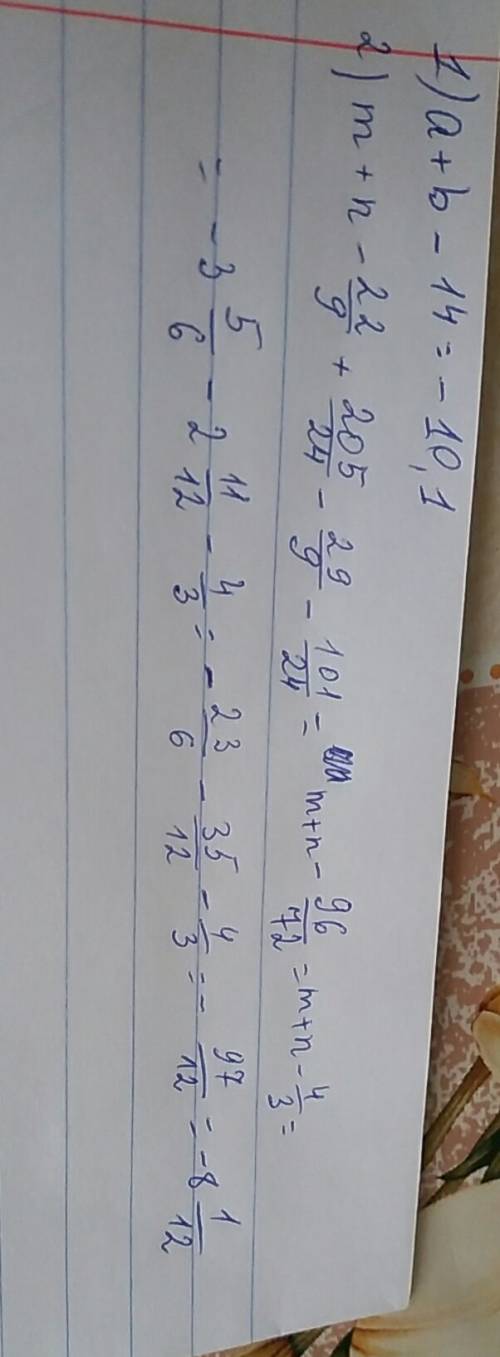 1) a + b - 14 = - 10,1
2) m + n - 22/9 + 205/24 - 29/9 - 101/24 = m+n - 96/72 = m+n - 4/3 =
= - 3 5/6 - 2 11/12 - 4/3 = - 23/6 - 35/12 - 4/3 = - 97/12 = - 8 1/12